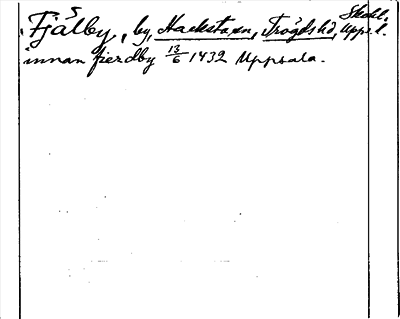 Fjälby, by, Hacksta sn, Trögds hd, Upps. l.
innan fierdby 13/6 1432 Uppsala.